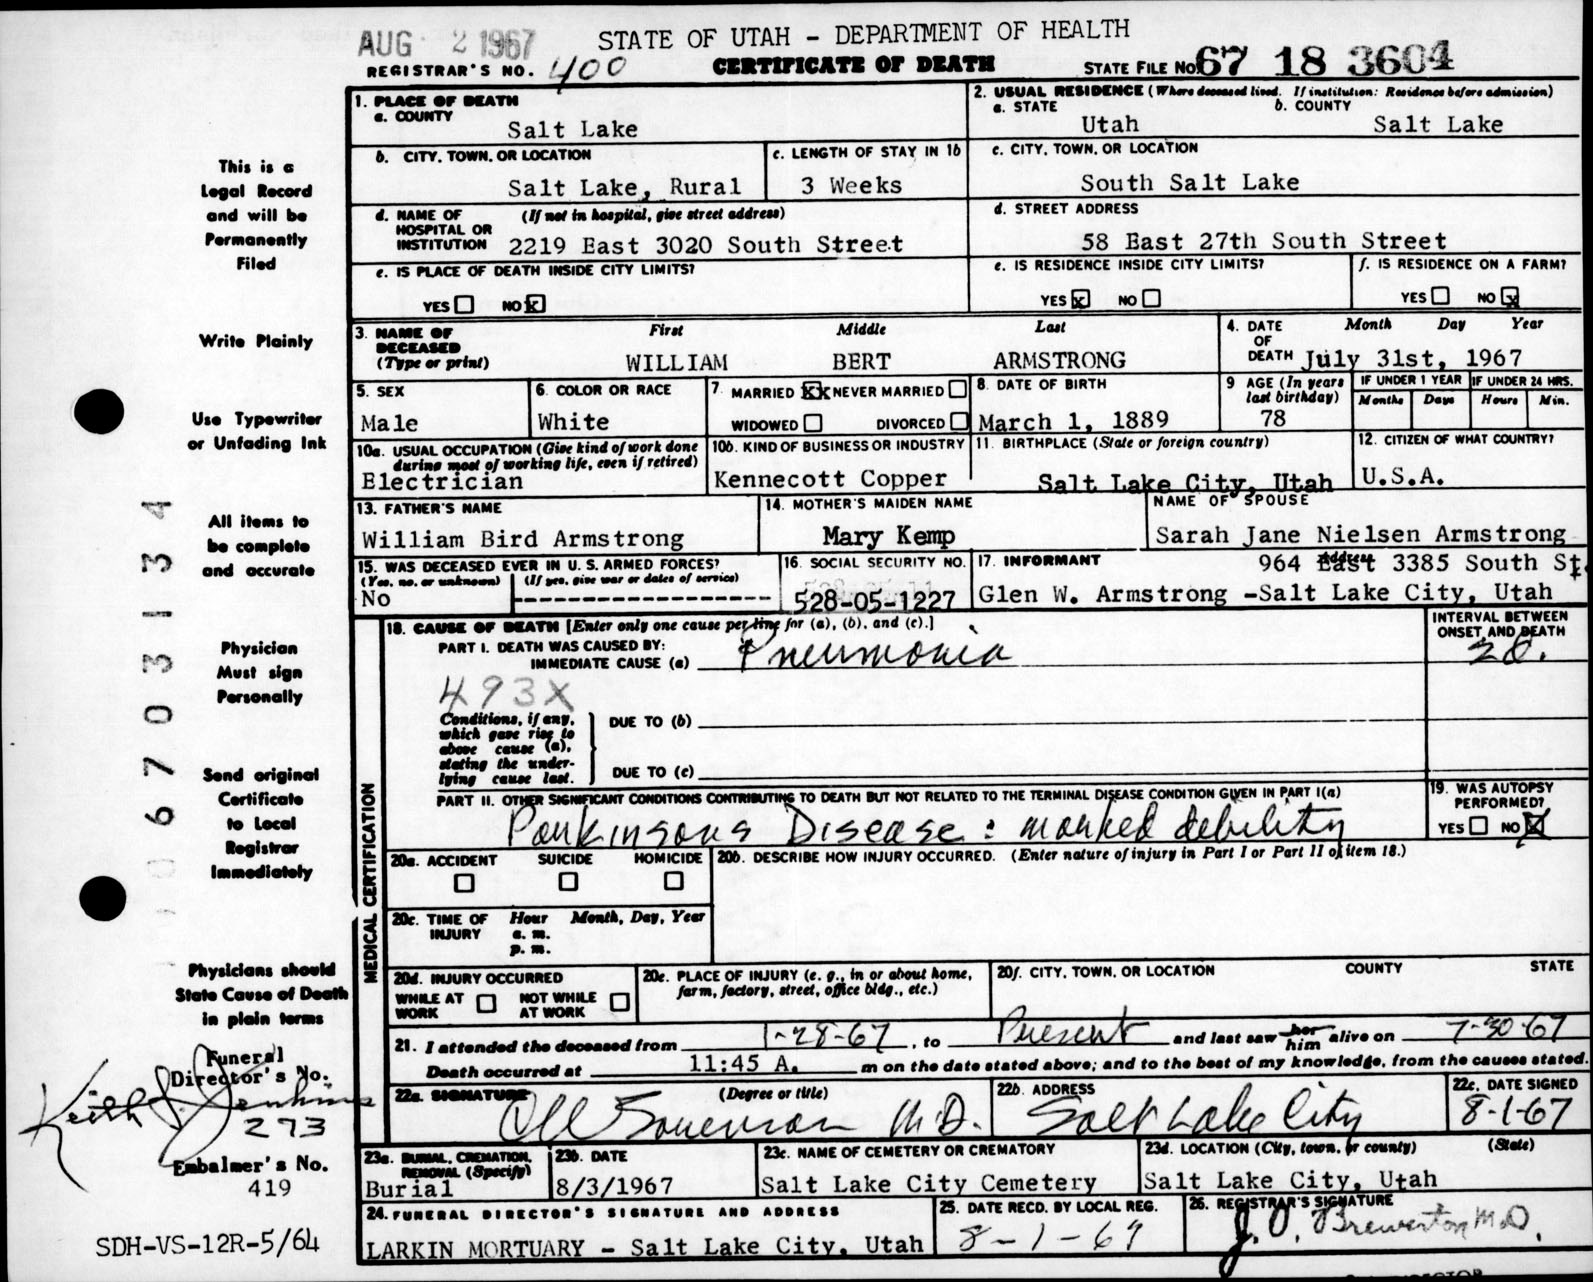 AUG 2 1967
STATE OF UTAH - DEPARTMENT OF HEALTH
REGISTRAR'S NO. 400
CERTIFICATE OF DEATH
STATE FILE NO. 67 18 3604
1. PLACE OF DEATH
a. COUNTY
Salt Lake
2. USUAL RESIDENCE (Where deceased lived. If institution: Residence before admission)
a. STATE b. COUNTY
Utah Salt Lake
b. CITY, TOWN, OR LOCATION
Salt Lake, Rural
c. LENGTH OF STAY IN 1b
3 Weeks
c. CITY, TOWN, OR LOCATION
South Salt Lake
d. NAME OF (If not in hospital, give street address)
HOSPITAL OR
INSTITUTION 2219 East 3020 South Street
d. STREET ADDRESS
58 East 27th South Street
e. IS PLACE OF DEATH INSIDE CITY LIMITS?
YES NO X
e. IS RESIDENCE INSIDE CITY LIMITS?
YES X NO
f. IS RESIDENCE ON A FARM?
YES NO X
3. NAME OF First Middle Last
DECEASED
(Type or print) WILLIAM BERT ARMSTRONG
4. DATE Month Day Year
OF
DEATH July 31st, 1967
5. SEX
Male
6. COLOR OR RACE
White
7. MARRIED XX NEVER MARRIED
WIDOWED DIVORCED
8. DATE OF BIRTH
March 1, 1889
9 AGE (In years
last birthday)
78
IF UNDER 1 YEAR IF UNDER 24 HRS.
Months Days Hours Min.
10a. USUAL OCCUPATION (Give kind of work done
during most of working life, even if retired)
Electrician
10b. KIND OF BUSINESS OR INDUSTRY
Kennecott Copper
11. BIRTHPLACE (State or foreign country)
Salt Lake City, Utah
12. CITIZEN OF WHAT COUNTRY?
U.S.A.
13. FATHER'S NAME
William Bird Armstrong
14. MOTHER'S MAIDEN NAME
Mary Kemp
NAME OF SPOUSE
Sarah Jane Nielsen Armstrong
15. WAS DECEASED EVER IN U. S. ARMED FORCES?
(Yes, no, or unknown) (If yes, give war or dates of service)
No ----------------------
16. SOCIAL SECURITY NO.
528-05-1227
17. INFORMANT Address
964 East 3385 South St.
Glen W. Armstrong -Salt Lake City, Utah
MEDICAL CERTIFICATION
18. CAUSE OF DEATH [Enter only one cause per line for (a), (b), and (c).]
INTERVAL BETWEEN
ONSET AND DEATH
PART I. DEATH WAS CAUSED BY:
IMMEDIATE CAUSE (a) Pneumonia 2d.
493X
Conditions, if any,
which gave rise to
above cause (a),
stating the under-
lying cause last.
DUE TO (b)
DUE TO (c)
PART II. OTHER SIGNIFICANT CONDITIONS CONTRIBUTING TO DEATH BUT NOT RELATED TO THE TERMINAL DISEASE CONDITION GIVEN IN PART I(a)
Parkinsons Disease: marked debility
19. WAS AUTOPSY
PERFORMED?
YES NO X
20a. ACCIDENT SUICIDE HOMICIDE
20b. DESCRIBE HOW INJURY OCCURRED. (Enter nature of injury in Part I or Part II of item 18.)
20c. TIME OF Hour Month, Day, Year
INJURY a. m.
p. m.
20d. INJURY OCCURRED
WHILE AT NOT WHILE
WORK AT WORK
20e. PLACE OF INJURY (e. g., in or about home,
farm, factory, street, office bldg., etc.)
20f. CITY, TOWN, OR LOCATION COUNTY STATE
21. I attended the deceased from 1-28-67, to Present and last saw her him alive on 7-30-67
Death occurred at 11:45 A. m on the date stated above; and to the best of my knowledge, from the causes stated.
22a. SIGNATURE (Degree or title)
Sorenson M.D.
22b. ADDRESS
Salt Lake City
22c. DATE SIGNED
8-1-67
23a. BURIAL, CREMATION,
REMOVAL (Specify)
Burial
23b. DATE
8/3/1967
23c. NAME OF CEMETERY OR CREMATORY
Salt Lake City Cemetery
23d. LOCATION (City, town, or county) (State)
Salt Lake City, Utah
24. FUNERAL DIRECTOR'S SIGNATURE AND ADDRESS
LARKIN MORTUARY - Salt Lake City, Utah
25. DATE RECD. BY LOCAL REG.
8-1-67
26. REGISTRAR'S SIGNATURE
J. O. Brewerton M.D.
This is a
Legal Record
and will be
Permanently
Filed
Write Plainly
Use Typewriter
or Unfading Ink
All items to
be complete
and accurate
Physician
Must sign
Personally
Send original
Certificate
to Local
Registrar
Immediately
Physicians should
State Cause of Death
in plain terms
Funeral
Director's No.
Keith J. Jenkins
273
Embalmer's No.
419
SDH-VS-12R-5/64
067031334